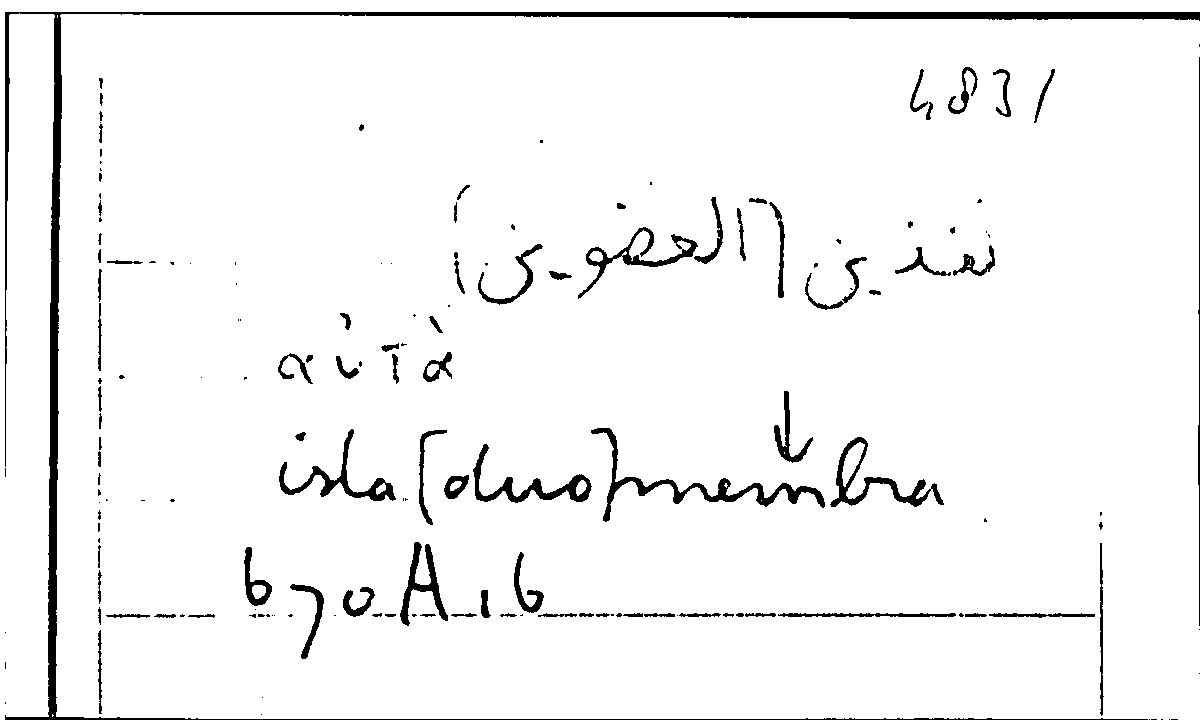 4831
[العضوين]
αὐτὰ
ista [duo] membra
670A16